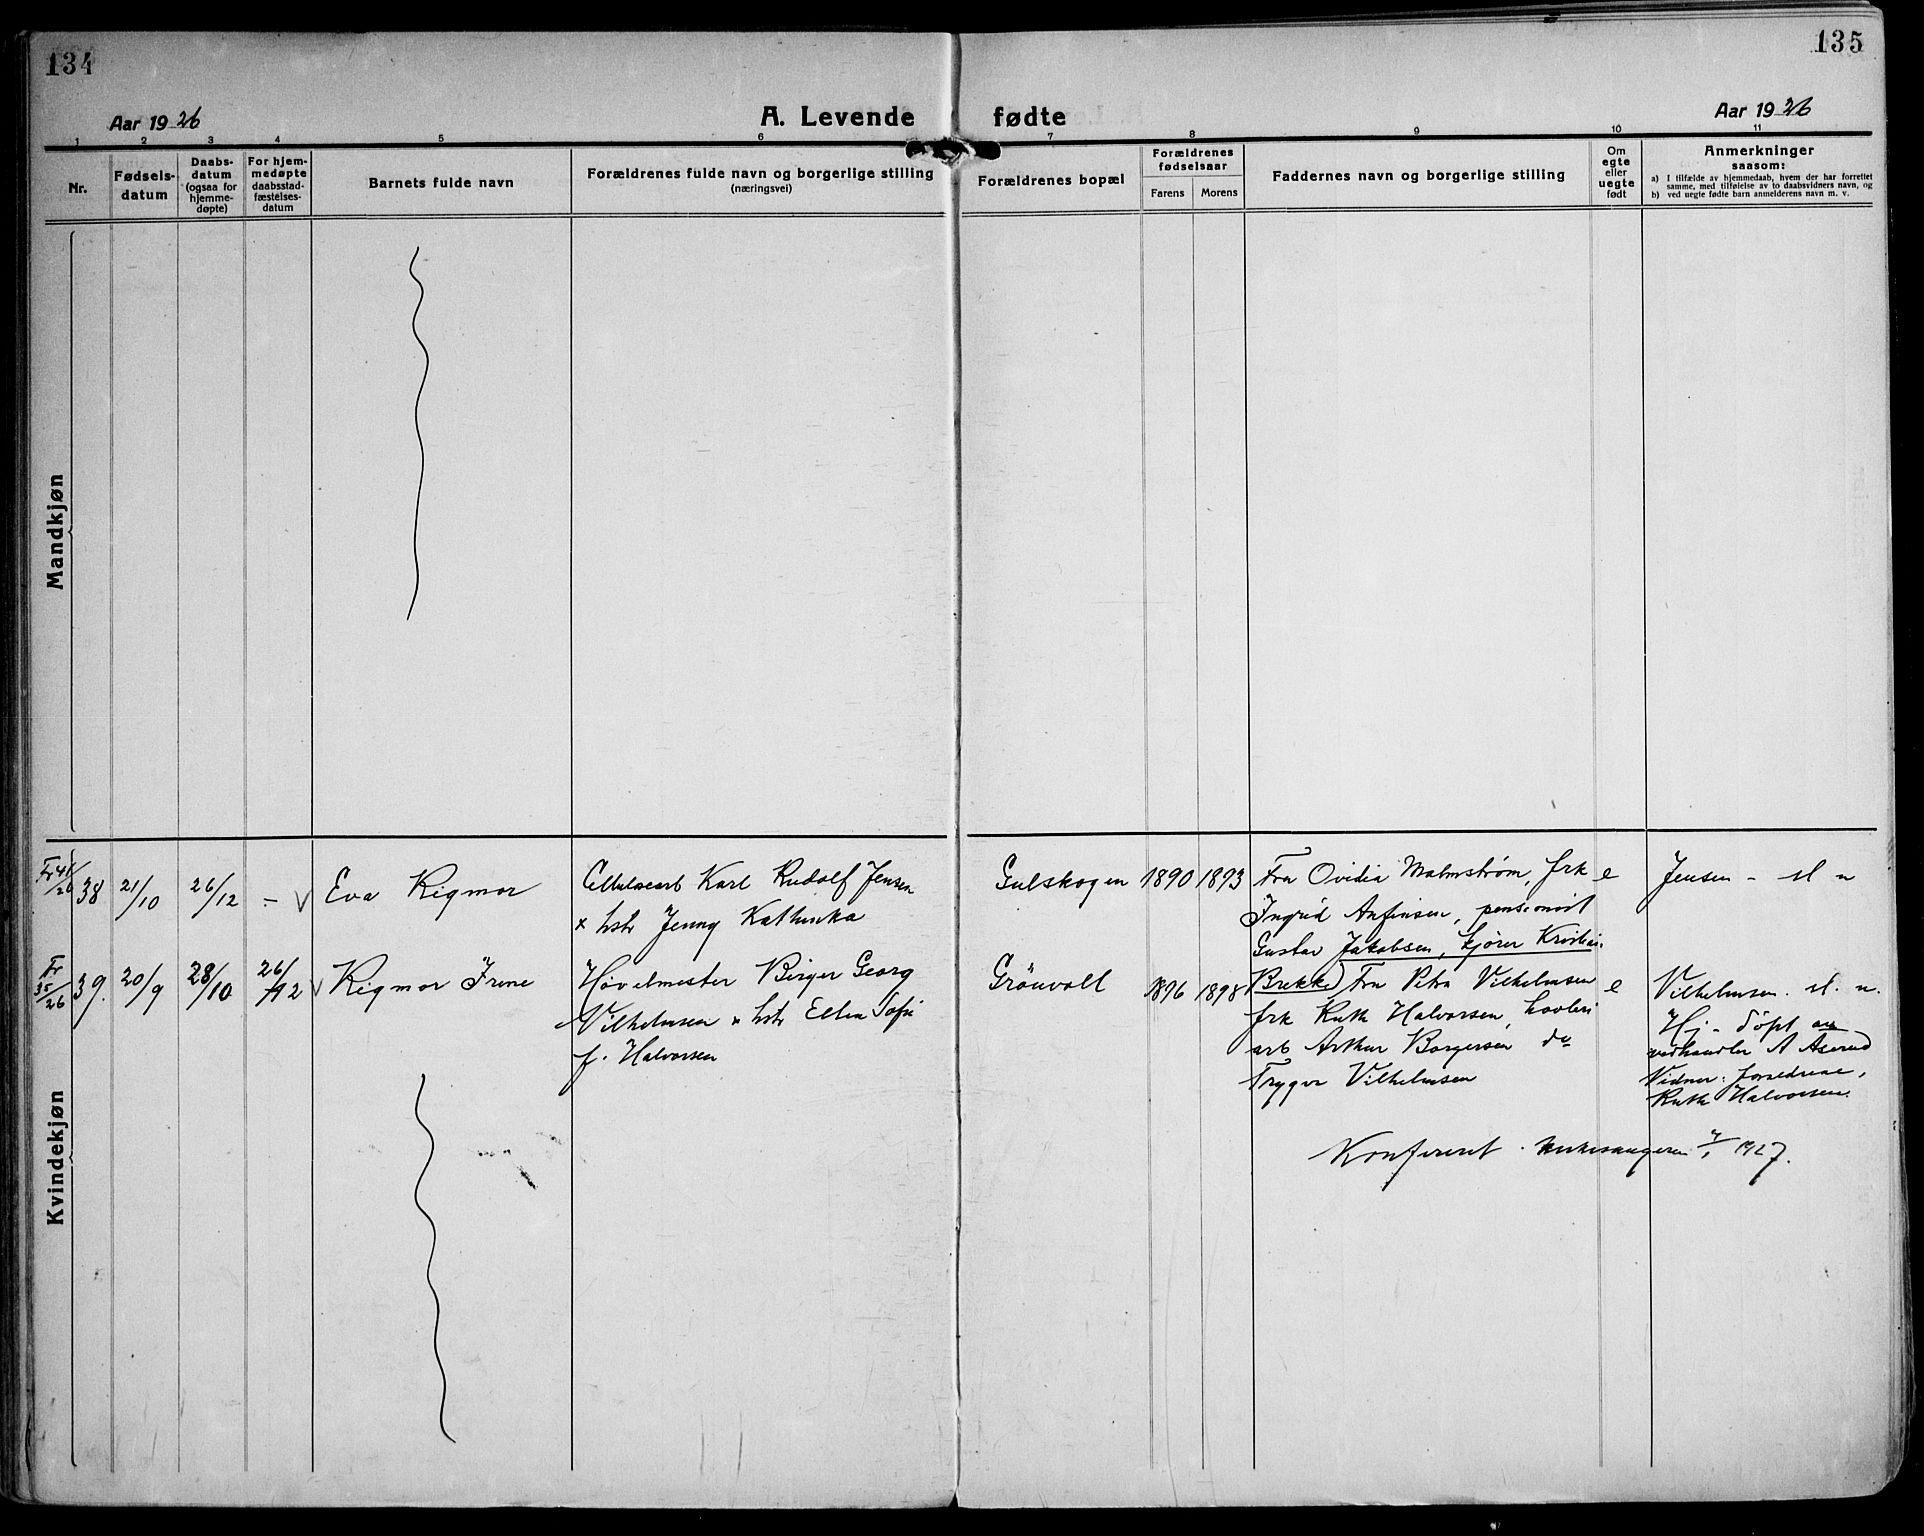 134
135
Aar 1926
A. Levende fødte
Aar 1926
1 2 3 4 5 6 7 8 9 10 11
Nr.
Fødsels-
datum
Daabs-
datum
(ogsaa for
hjemme-
døpte)
For hjem-
medøpte
daabsstad-
fæstelses-
datum
Barnets fulde navn
Forældrenes fulde navn og borgerlige stilling
(næringsvei)
Forældrenes bopæl
Forældrenes
fødselsaar
Farens Morens
Faddernes navn og borgerlige stilling
Om
egte
eller
uegte
født
Anmerkninger
saasom:
a) I tilfælde av hjemmedaab, hvem der har forrettet
samme, med tilføielse av to daabsvidners navn, og
b) ved uegte fødte barn anmelderens navn m. v.
Mandkjøn
Kvindekjøn
Fr 41/26 38 21/10 26/12 - V Eva Rigmor
Cellulosearb Karl Rudolf Jensen
x hstr Jenny Kathinka
Gulskogen 1890 1893
Fru Ovidia Malmstrøm, frk
Ingrid Anfinsen, pensionist
Gustav Jakobsen, kjører Kristian
Brekke)
e
Jensen - sl n
Fr 35/26 39. 20/9 28/10 26/12 V Rigmor Irene
Høvelmester Birger Georg
Vilhelmsen x hstr Ellen Sofie
f. Halvorsen
Grönvold 1896 1898
Fru Petra Vilhelmsen
frk Ruth Halvorsen, høvleri
arb Arthur Borgersen do
Trygve Vilhelmsen
e
Vilhelmsen. sl. n.
Hj-döpt av
vedhandler A Aserud
Vidner: forældrene,
Ruth Halvorsen.
Konfereret 1927.